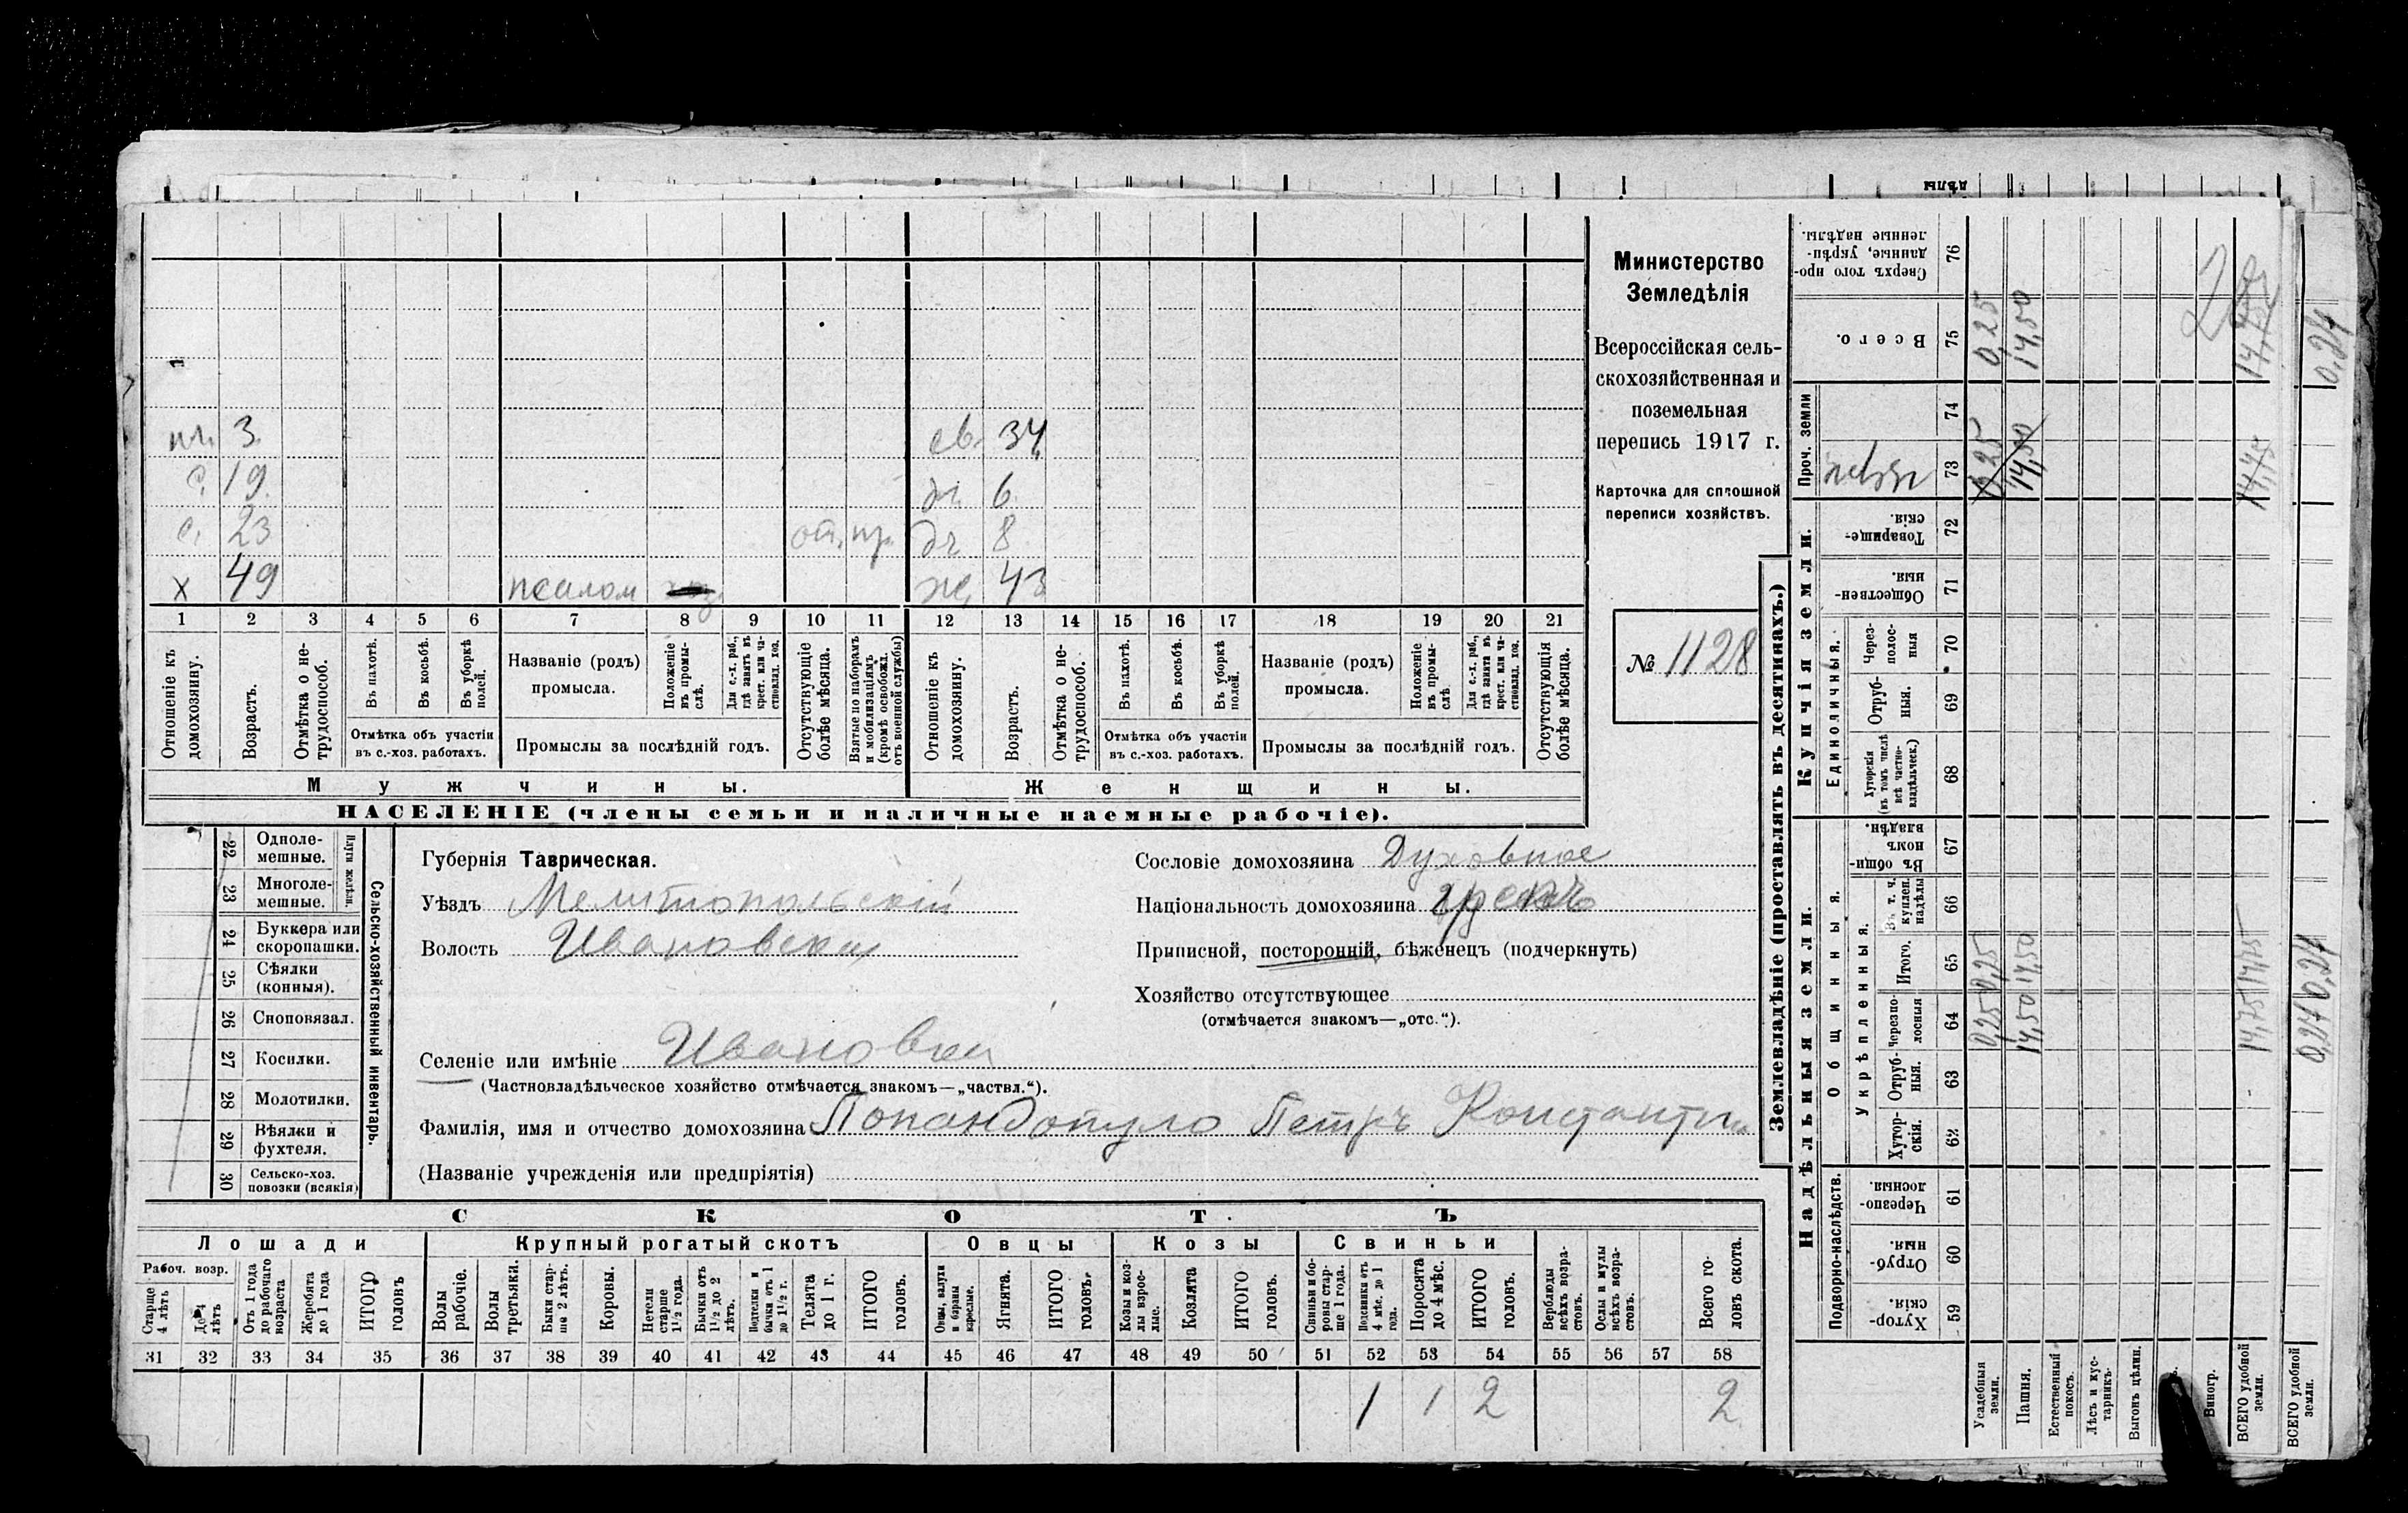 дѣлы
1
пл. 3 св. 34
с. 19 дч 6
с. 23 от. пр. дч 8
х 49 псалом хоз. же. 43
1 2 3 4 5 6 7 8 9 10 11 12 13 14 15 16 17 18 19 20 21
Отношеніе къ домохозяину.
Возрастъ.
Отмѣтка о нетрудоспособ.
Въ пахотѣ.
Въ косьбѣ.
Въ уборкѣ полей.
Отмѣтка объ участіи
въ с.-хоз. работахъ.
Названіе (родъ)
промысла.
Положеніе въ промыслѣ.
Для с.-х. раб., гдѣ занятъ въ крест. или частновлад. хоз.
Промыслы за послѣдній годъ.
Отсутствующіе болѣе мѣсяца.
Взятые по наборамъ и мобилизаціямъ (кромѣ освобожд. отъ военной службы)
Отношеніе къ домохозяину.
Возрастъ.
Отмѣтка о нетрудоспособ.
Въ пахотѣ.
Въ косьбѣ.
Въ уборкѣ полей.
Отмѣтка объ участіи
въ с.-хоз. работахъ.
Названіе (родъ)
промысла.
Положеніе въ промыслѣ.
Для с.-х. раб., гдѣ занята въ крест. или частновлад. хоз.
Промыслы за послѣдній годъ.
Отсутствующія болѣе мѣсяца.
Мужчины.
Женщины.
НАСЕЛЕНІЕ (члены семьи и наличные наемные рабочіе).
Министерство
Земледѣлія
Всероссійская сель-
скохозяйственная и
поземельная
перепись 1917 г.
Карточка для сплошной
переписи хозяйствъ.
№ 1128
22 Одноле-
мешные.
23 Многоле-
мешные.
Плуги желѣзн.
24 Буккера или
скоропашки.
25 Сѣялки
(конныя).
26 Сноповязал.
27 Косилки.
28 Молотилки.
29 Вѣялки и
фухтеля.
30 Сельско-хоз.
повозки (всякія)
Сельско-хозяйственный инвентарь.
Губернія Таврическая.
Уѣздъ Мелитопольскій
Волость Ивановская
Селеніе или имѣніе Ивановка
(Частновладѣльческое хозяйство отмѣчается знакомъ—„частвл.“).
Фамилія, имя и отчество домохозяина Попандопуло Петръ Константин
(Названіе учрежденія или предпріятія)
Сословіе домохозяина Духовное
Національность домохозяина грекъ
Приписной, посторонній, бѣженецъ (подчеркнуть)
Хозяйство отсутствующее
(отмѣчается знакомъ—„отс.“).
СКОТЪ
Лошади
Рабоч. возр.
Старше 4 лѣтъ
До 4 лѣтъ
Отъ 1 года до рабочаго возраста
Жеребята до 1 года
ИТОГО головъ
Крупный рогатый скотъ
Волы рабочіе.
Волы третьяки.
Быки старше 2 лѣтъ.
Коровы.
Нетели старше 1½ года.
Бычки отъ 1½ до 2 лѣтъ.
Подтелки и бычки отъ 1 до 1½ г.
Телята до 1 г.
ИТОГО головъ.
Овцы
Овцы, валухи и бараны взрослые.
Ягнята.
ИТОГО головъ.
Козы
Козы и козлы взрослые.
Козлята
ИТОГО головъ.
Свиньи
Свиньи и боровы старше 1 года.
Подсвинки отъ 4 мѣс. до 1 года.
Поросята до 4 мѣс.
ИТОГО головъ.
Верблюды всѣхъ возрастовъ.
Ослы и мулы всѣхъ возрастовъ.
Всего головъ скота.
31 32 33 34 35 36 37 38 39 40 41 42 43 44 45 46 47 48 49 50 51 52 53 54 55 56 57 58
1 1 2 2
Землевладѣніе (проставлять въ десятинахъ.)
Надѣльныя земли.
Купчія земли.
Проч. земли
Подворно-наслѣдств.
Общинныя.
Укрѣпленныя.
Единоличныя.
Сверхъ того проданные, укрѣпленные надѣлы. 76
Всего. 75 0,25 14,50 14,75 0,24
74
73 0,25 14,50 14,75
Товарищескія. 72
Общественныя. 71
Черезполосныя 70
Отрубныя. 69
Хуторскія (въ томъ числѣ всѣ частновладѣльческ.) 68
Въ общинномъ владѣн. 67
Въ т. ч. куплен. надѣлы 66
Итого. 65 0,25 14,50 14,75 0,24
Черезполосныя 64 0,25 14,50 14,75 0,24
Отрубныя. 63
Хуторскія. 62
Черезполосныя. 61
Отрубныя. 60
Хуторскія. 59
Усадебныя земли.
Пашня.
Естественный покосъ.
Лѣсъ и кустарникъ.
Выгонъ цѣлин.
Виногр.
ВСЕГО удобной земли.
ВСЕГО удобной земли.
2